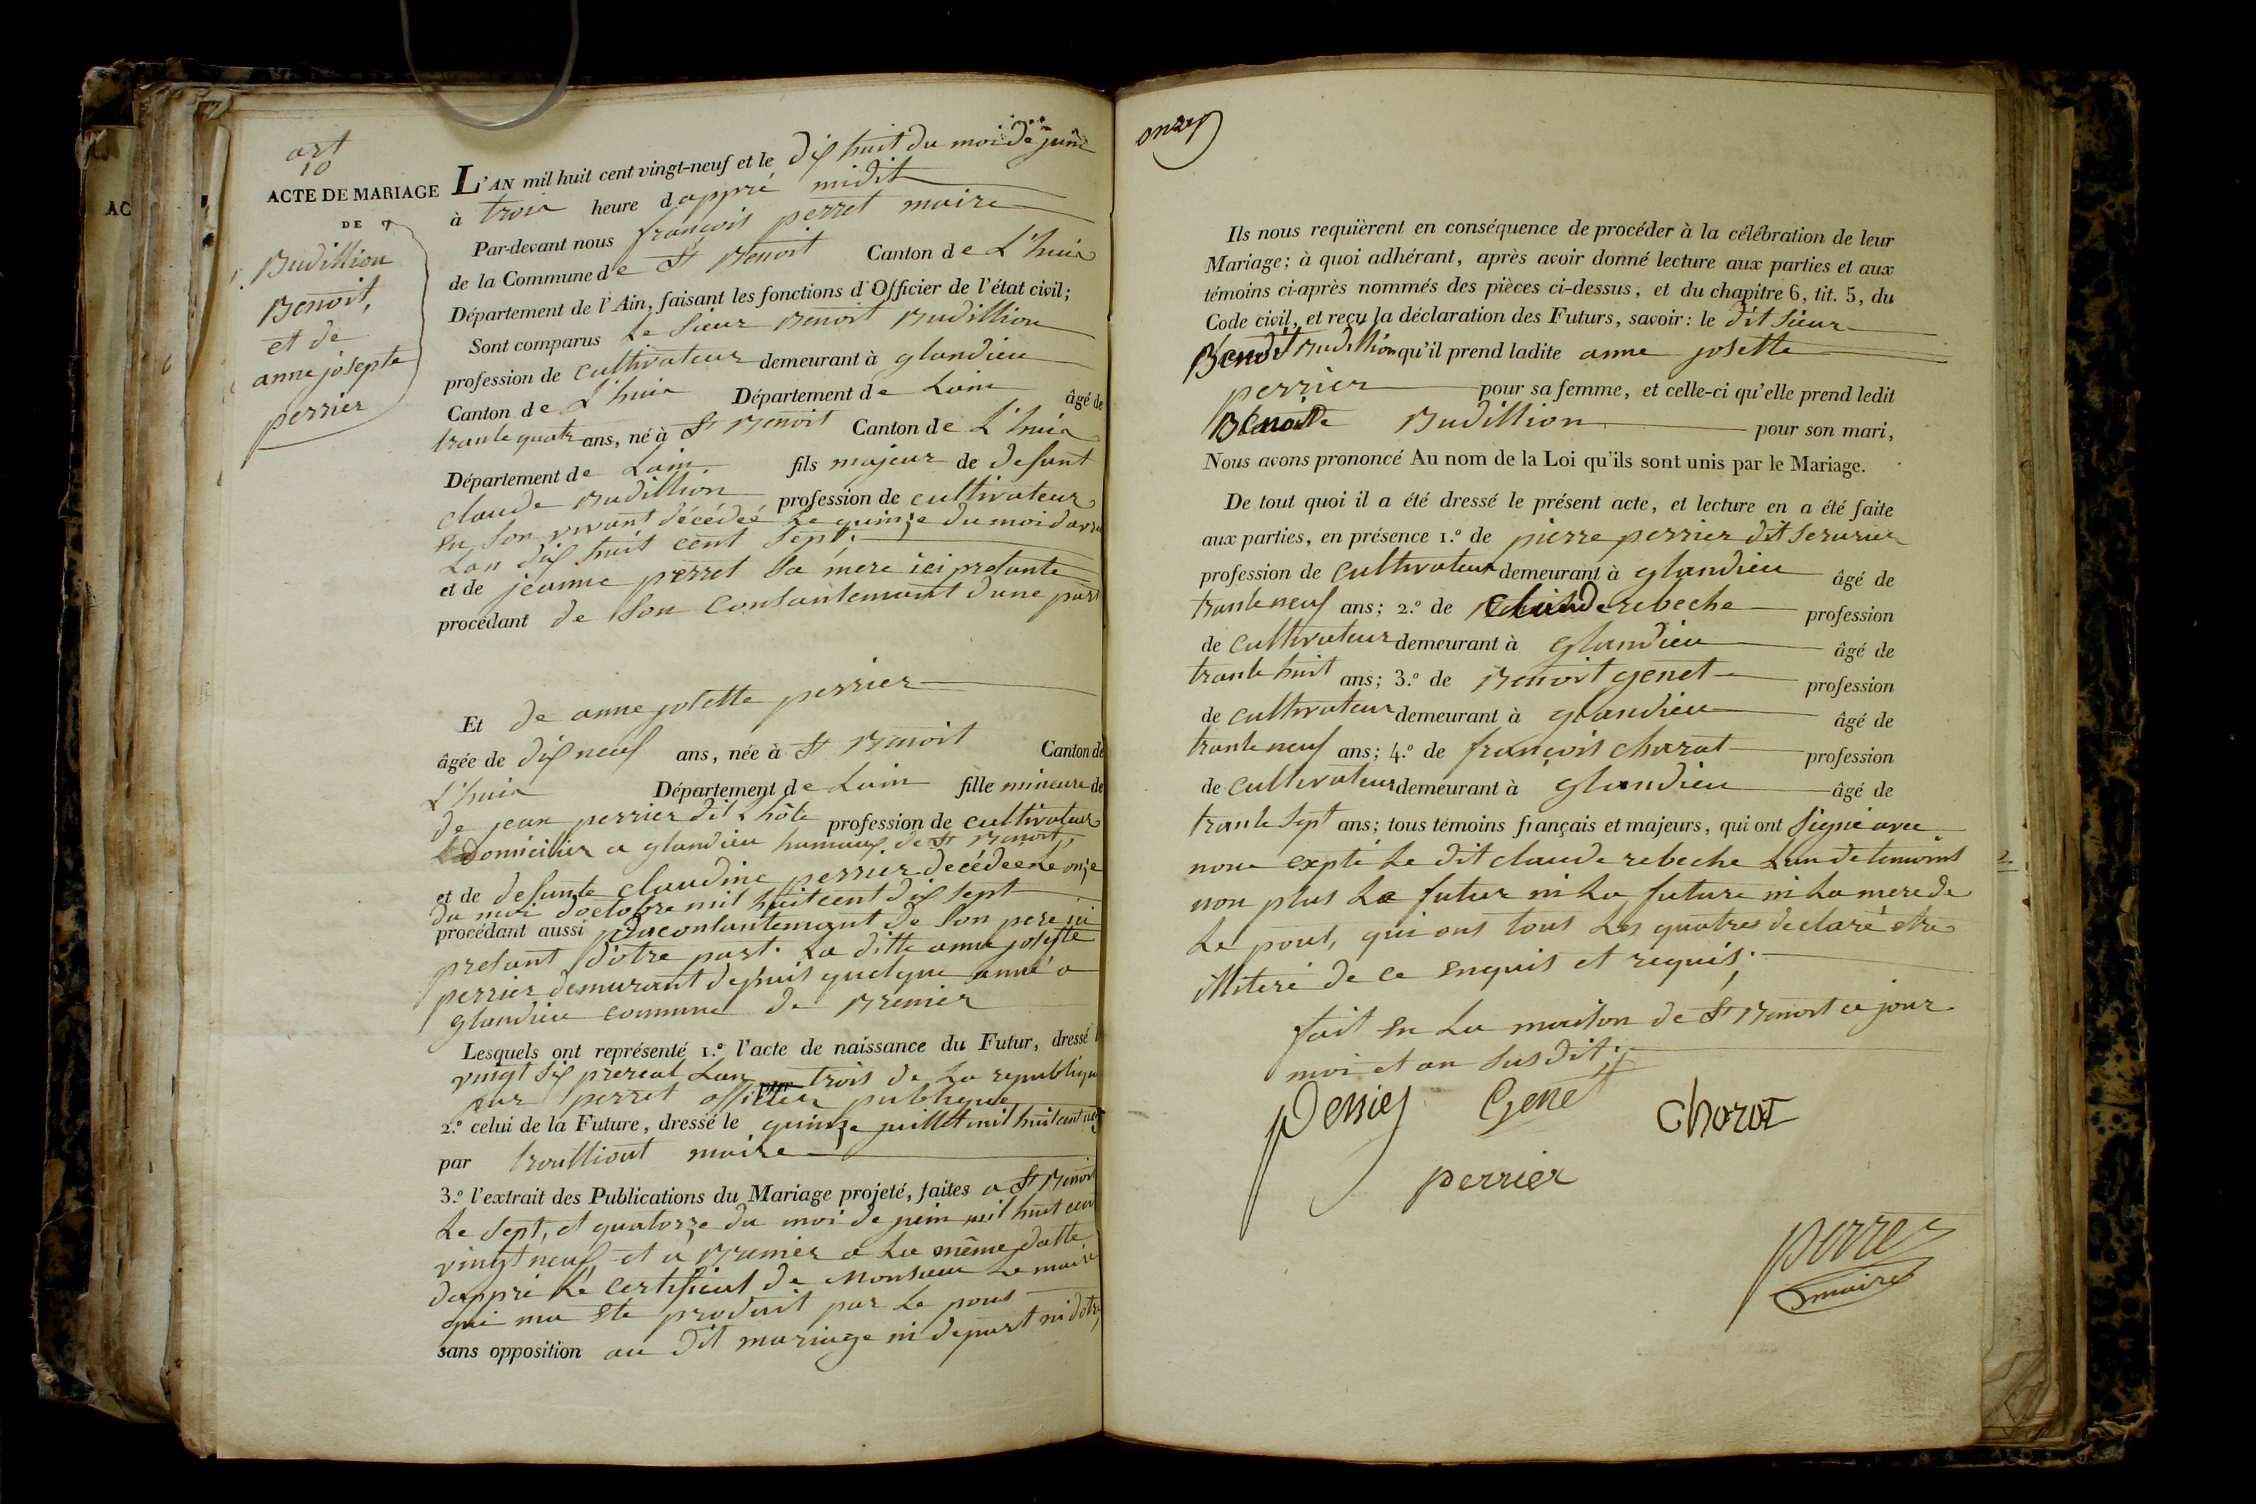 art
10
ACTE DE MARIAGE
DE
Budillion
Benoit,
et de
anne josepte
perrier
AC
L'AN mil huit cent vingt-neuf et le dix huit du moi de juin
à trois heure d appré midit
Par-devant nous francois perret maire
de la Commune de St Benoit Canton de L'huis
Département de l'Ain, faisant les fonctions d'Officier de l'état civil;
Sont comparus Le Sieur Benoit Budillion
profession de cultivateur demeurant à glandieu
Canton de L'huis Département de Lain âgé de
trante quatr ans, né à St Benoit Canton de L'huis
Département de Lain. fils majeur de defunt
claude Budillion profession de cultivateur
en son vivant décédeé Le quinze du moi davril
Lan dix huit cent sept.
et de jeanne perret sa mere ici presante
procédant de son consantemant dune part
Et de anne josette perrier
âgée de dix neuf ans, née à St Benoit Canton de
L'huis Département de Lain fille mineure de
de jean perrier dit Lhôte profession de cultivateur
domicilier a glandieu hamaux de St Benoit,
et de defunte claudine perrier decédeé Le onze
du moi doctobre mil huit cent dix sept
procédant aussi du consantemant de son pere ici
presant d'otre part. La ditte anne josette
perrier demurant depuis quelque anné a
glandieu commune de Brenier
Lesquels ont représenté 1.º l'acte de naissance du Futur, dressé l
vingt six prereal Lan trois de La republique
par perret officier publique
2.º celui de la Future, dressé le quinze juillet mil huit cent neuf
par trollliout maire
3.º l'extrait des Publications du Mariage projeté, faites a St Benoit
Le sept, et quatorze du moi de juin mil huit cent
vingt neuf et a Brenier a La même datte
dappré Le certificat de Monsieur Le maire
qui ma ete produit par Le poux
sans opposition au dit mariage ni depart ni dotre,
onze
Ils nous requièrent en conséquence de procéder à la célébration de leur
Mariage; à quoi adhérant, après avoir donné lecture aux parties et aux
témoins ci-après nommés des pièces ci-dessus, et du chapitre 6, tit. 5, du
Code civil, et reçu la déclaration des Futurs, savoir: le dit sieur
Benoit Budillion qu'il prend ladite anne josette
perrier pour sa femme, et celle-ci qu'elle prend ledit
Benoit Budillion pour son mari,
Nous avons prononcé Au nom de la Loi qu'ils sont unis par le Mariage.
De tout quoi il a été dressé le présent acte, et lecture en a été faite
aux parties, en présence 1.º de pierre perrier dit serurier
profession de cultivateur demeurant à glandieu âgé de
trante neuf ans; 2.º de claude rebeche profession
de cultivateur demeurant à glandieu âgé de
trante huit ans; 3.º de Benoit genet profession
de cultivateur demeurant à glandieu âgé de
trante neuf ans; 4.º de françois charat profession
de cultivateur demeurant à glandieu âgé de
trante sept ans; tous témoins français et majeurs, qui ont signé avec
nous expté Le dit claude rebeche Lun de temoins
non plus Le futur ni La future ni La mere de
Le poux, qui ont tous Les quatres declaré etre
illiteré de ce enquis et requis;
fait en La maison de St Benoit ce jour
moi et an susdit;
perrier Genet Charat
perrier
perret
maire